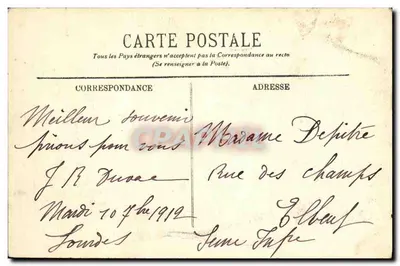 CARTE POSTALE
Tous les Pays étrangers n'acceptent pas la Correspondance au recto
(Se renseigner à la Poste).
CORRESPONDANCE
Meilleur souvenir
prions pour vous
J R
Mardi 10 7bre 1912
Lourdes
ADRESSE
Madame Depitre
Rue des champs
Elbeuf
Seine Infre